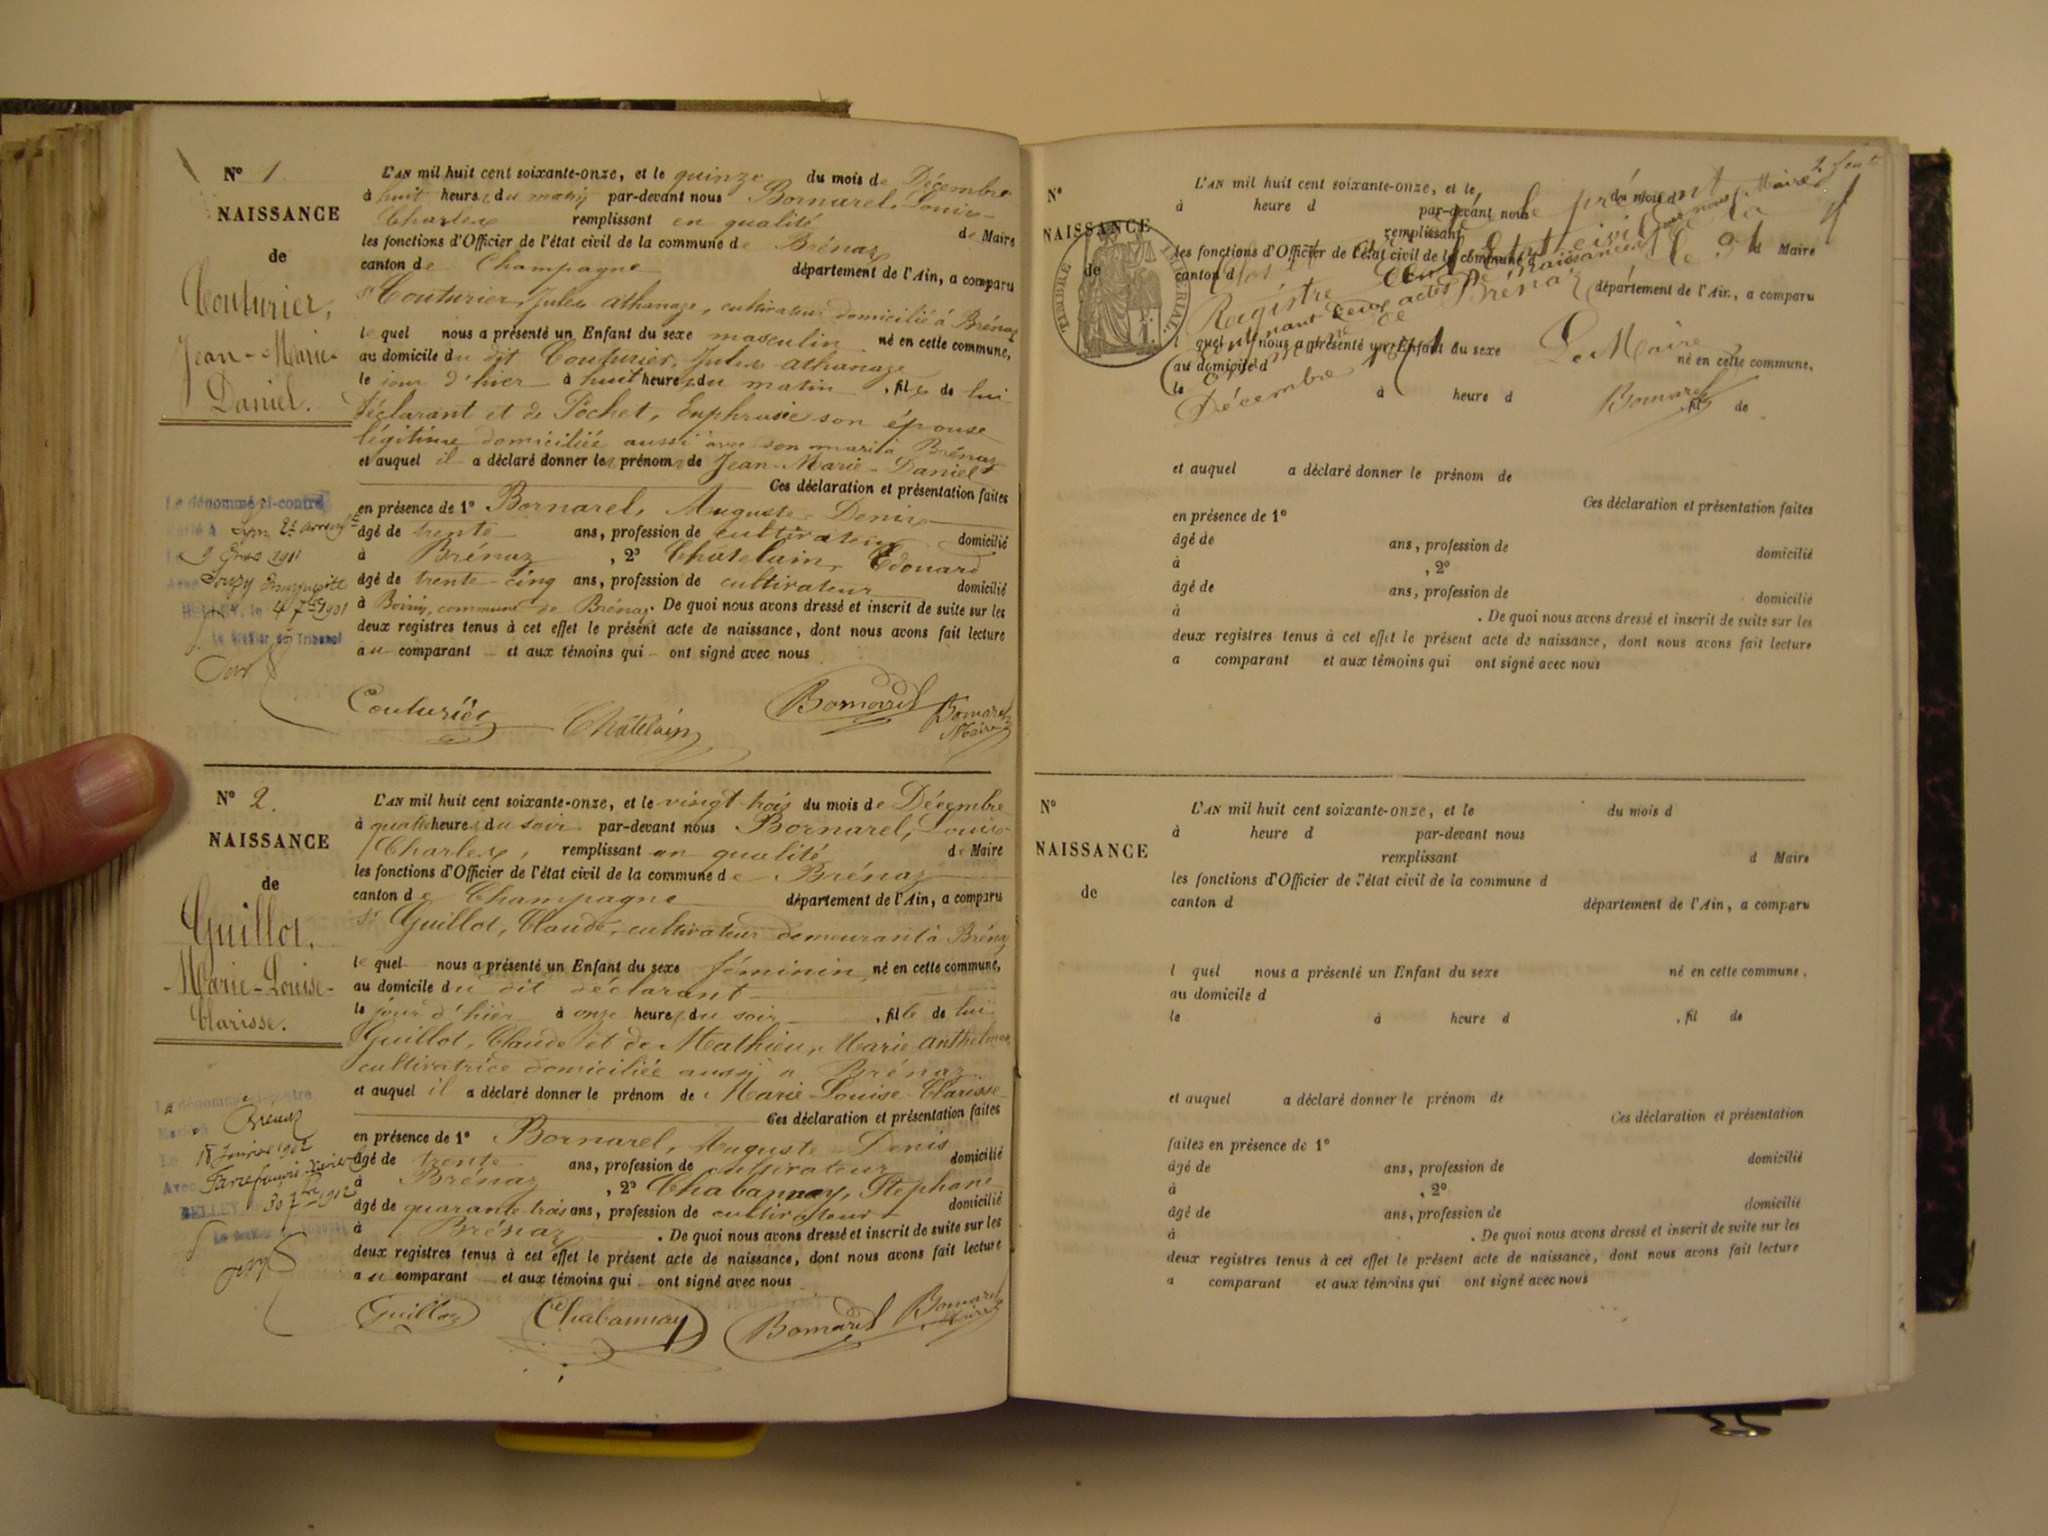 N° 1
NAISSANCE
de
Couturier,
Jean-Marie-
Daniel.
L'AN mil huit cent soixante-onze, et le quinze du mois de Décembre
à huit heures du matin par-devant nous Bornarel, Louis-
Charles remplissant en qualité de Maire
les fonctions d'Officier de l'état civil de la commune de Brénaz
canton de Champagne département de l'Ain, a comparu
Sr Couturier, Jules athanaze, cultivateur domicilié à Brénaz
lequel nous a présenté un Enfant du sexe masculin né en cette commune,
au domicile du dit Couturier, Jules athanaze
le jour d'hier à huit heures du matin, fils de lui
déclarant et de Pochet, Euphrasie son épouse
légitime domiciliée aussi avec son mari à Brénaz
et auquel il a déclaré donner les prénoms de Jean-Marie-Daniel
Ces déclaration et présentation faites
en présence de 1° Bornarel, Auguste Denis
âgé de trente ans, profession de cultivateur domicilié
à Brénaz, 2° Chatelain, Edouard
âgé de trente-cinq ans, profession de cultivateur domicilié
à commune de Brénaz. De quoi nous avons dressé et inscrit de suite sur les
deux registres tenus à cet effet le présent acte de naissance, dont nous avons fait lecture
au comparant et aux témoins qui ont signé avec nous
Le dénommé ci-contre
Lyon 2e arrondt
1911
BELLEY, le 4 7bre 1931
Le Greffier du Tribunal
Couturier Châtelain Bornarel Bornarel
Maire
N° 2.
NAISSANCE
de
Guillot,
Marie-Louise-
Clarisse.
L'AN mil huit cent soixante-onze, et le vingt-trois du mois de Décembre
à quatre heures du soir par-devant nous Bornarel, Louis-
Charles, remplissant en qualité de Maire
les fonctions d'Officier de l'état civil de la commune de Brénaz
canton de Champagne département de l'Ain, a comparu
Sr Guillot, Claude, cultivateur demeurant à Brénaz
lequel nous a présenté un Enfant du sexe féminin né en cette commune,
au domicile du dit déclarant
le jour d'hier à onze heures du soir, fille de lui
Guillot, Claude et de Mathieu, Marie anthelmes
cultivatrice domiciliée aussi à Brénaz
et auquel il a déclaré donner le prénom de Marie-Louise-Clarisse
Ces déclaration et présentation faites
en présence de 1° Bornarel, Auguste Denis
âgé de trente ans, profession de cultivateur domicilié
à Brénaz, 2° Chabannay, Stéphane
âgé de quarante-trois ans, profession de cultivateur domicilié
à Brénaz. De quoi nous avons dressé et inscrit de suite sur les
deux registres tenus à cet effet le présent acte de naissance, dont nous avons fait lecture
au comparant et aux témoins qui ont signé avec nous
Brenaz
Avec
BELLEY 30 7bre 1912
Guillot Chabannay Bornarel Bornarel
Maire
N°
NAISSANCE
de
TIMBRE IMPÉRIAL
L'AN mil huit cent soixante-onze, et le du mois d
à heure d par-devant nous
remplissant d Maire
les fonctions d'Officier de l'état civil de la commune d
canton d département de l'Ain, a comparu
l quel nous a présenté un Enfant du sexe né en cette commune.
au domicile d
le à heure d fil de
le présent
Registre
contenant deux actes de Naissances
Brénaz le 31
Décembre 1871
Le Maire
Bornarel
et auquel a déclaré donner le prénom de
Ces déclaration et présentation faites
en présence de 1°
âgé de ans, profession de domicilié
à , 2°
âgé de ans, profession de domicilié
à . De quoi nous avons dressé et inscrit de suite sur les
deux registres tenus à cet effet le présent acte de naissance, dont nous avons fait lecture
a comparant et aux témoins qui ont signé avec nous
N°
NAISSANCE
de
L'AN mil huit cent soixante-onze, et le du mois d
à heure d par-devant nous
remplissant d Maire
les fonctions d'Officier de l'état civil de la commune d
canton d département de l'Ain, a comparu
l quel nous a présenté un Enfant du sexe né en cette commune.
au domicile d
le à heure d , fil de
et auquel a déclaré donner le prénom de
Ces déclaration et présentation
faites en présence de 1°
âgé de ans, profession de domicilié
à , 2°
âgé de ans, profession de domicilié
à . De quoi nous avons dressé et inscrit de suite sur les
deux registres tenus à cet effet le présent acte de naissance, dont nous avons fait lecture
a comparant et aux témoins qui ont signé avec nous